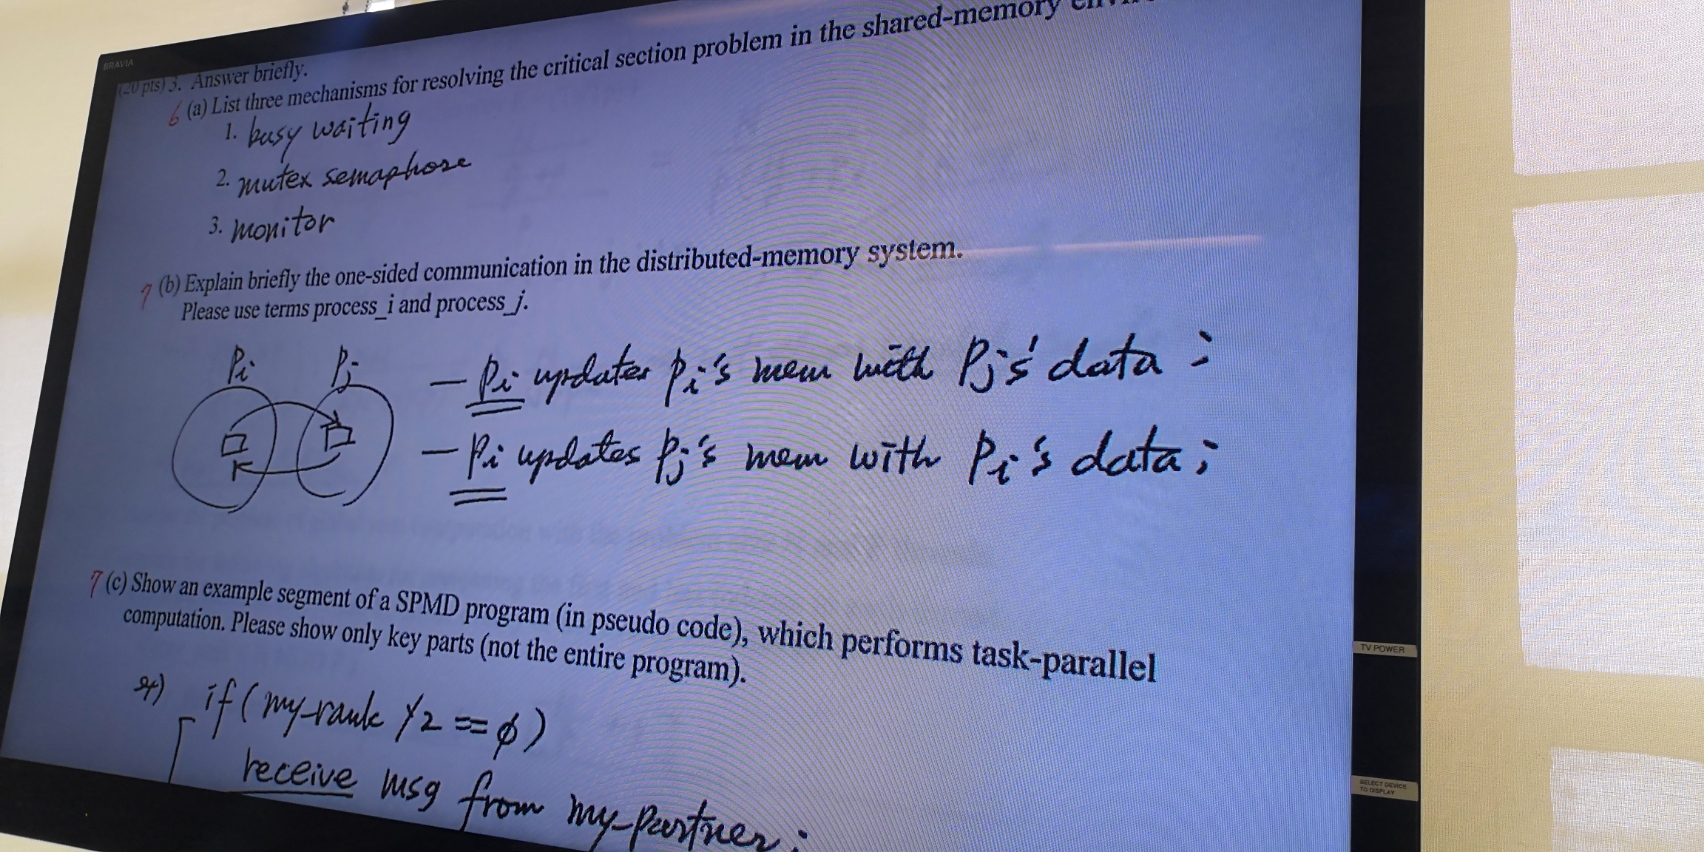 BRAVIA
(20 pts) 3. Answer briefly.
6 (a) List three mechanisms for resolving the critical section problem in the shared-memory
1. busy waiting
2. mutex semaphore
3. monitor
7 (b) Explain briefly the one-sided communication in the distributed-memory system.
Please use terms process_i and process_j.
Pi Pj
— Pi updates Pi's mem with Pj's data ;
— Pi updates Pj's mem with Pi's data ;
7 (c) Show an example segment of a SPMD program (in pseudo code), which performs task-parallel
computation. Please show only key parts (not the entire program).
if ( my-rank % 2 == φ )
receive msg from my-partner ;
TV POWER
SELECT DEVICE
TO DISPLAY